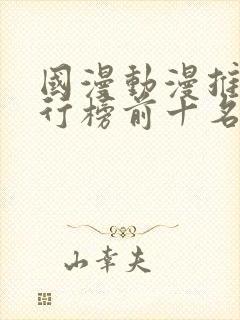 國漫動漫推
行榜前十名
山幸夫